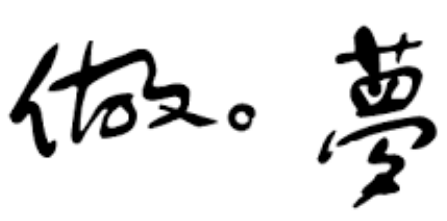 做。夢